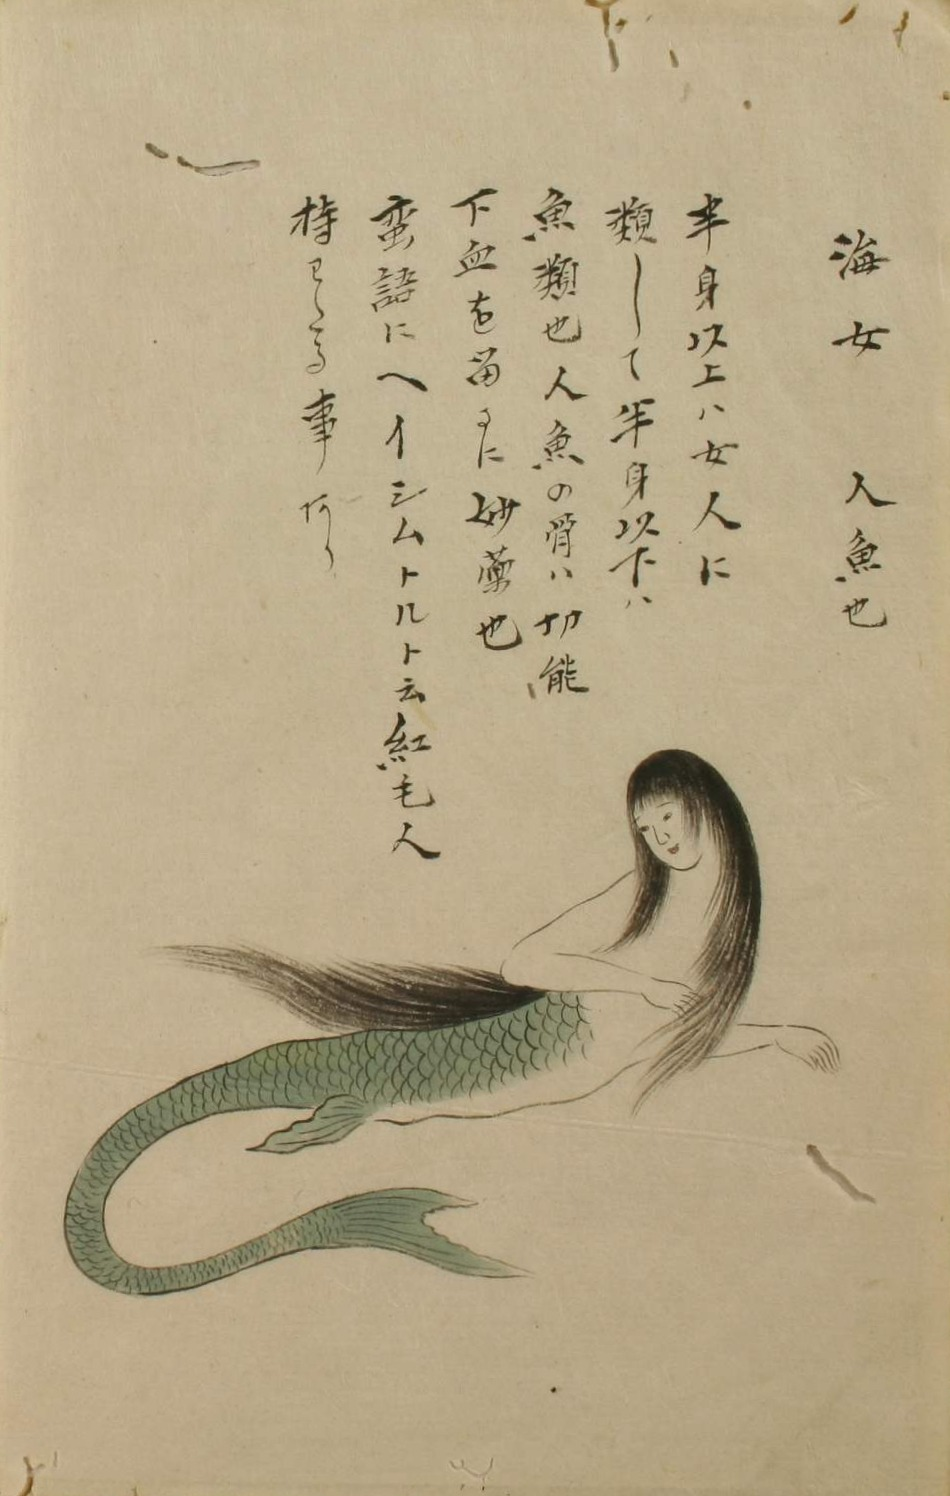 海女 人魚也
半身以上ハ女人に
類して半身以下ハ
魚類也人魚の骨ハ切能
下血を留るに妙薬也
蛮語にヘイシムトルト云紅毛人
持わたる事